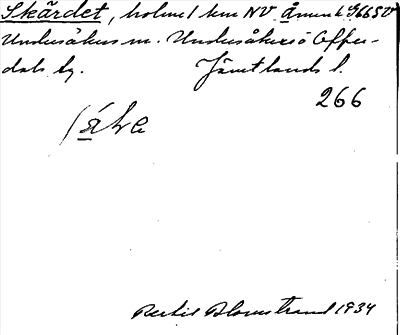 Skärdet, holme 1 km NV Åmun 6 SV
Undersåkers sn. Undersåkers o Offer-
dals tg. Jämtlands l.
266
Bertil Blomstrand 1934